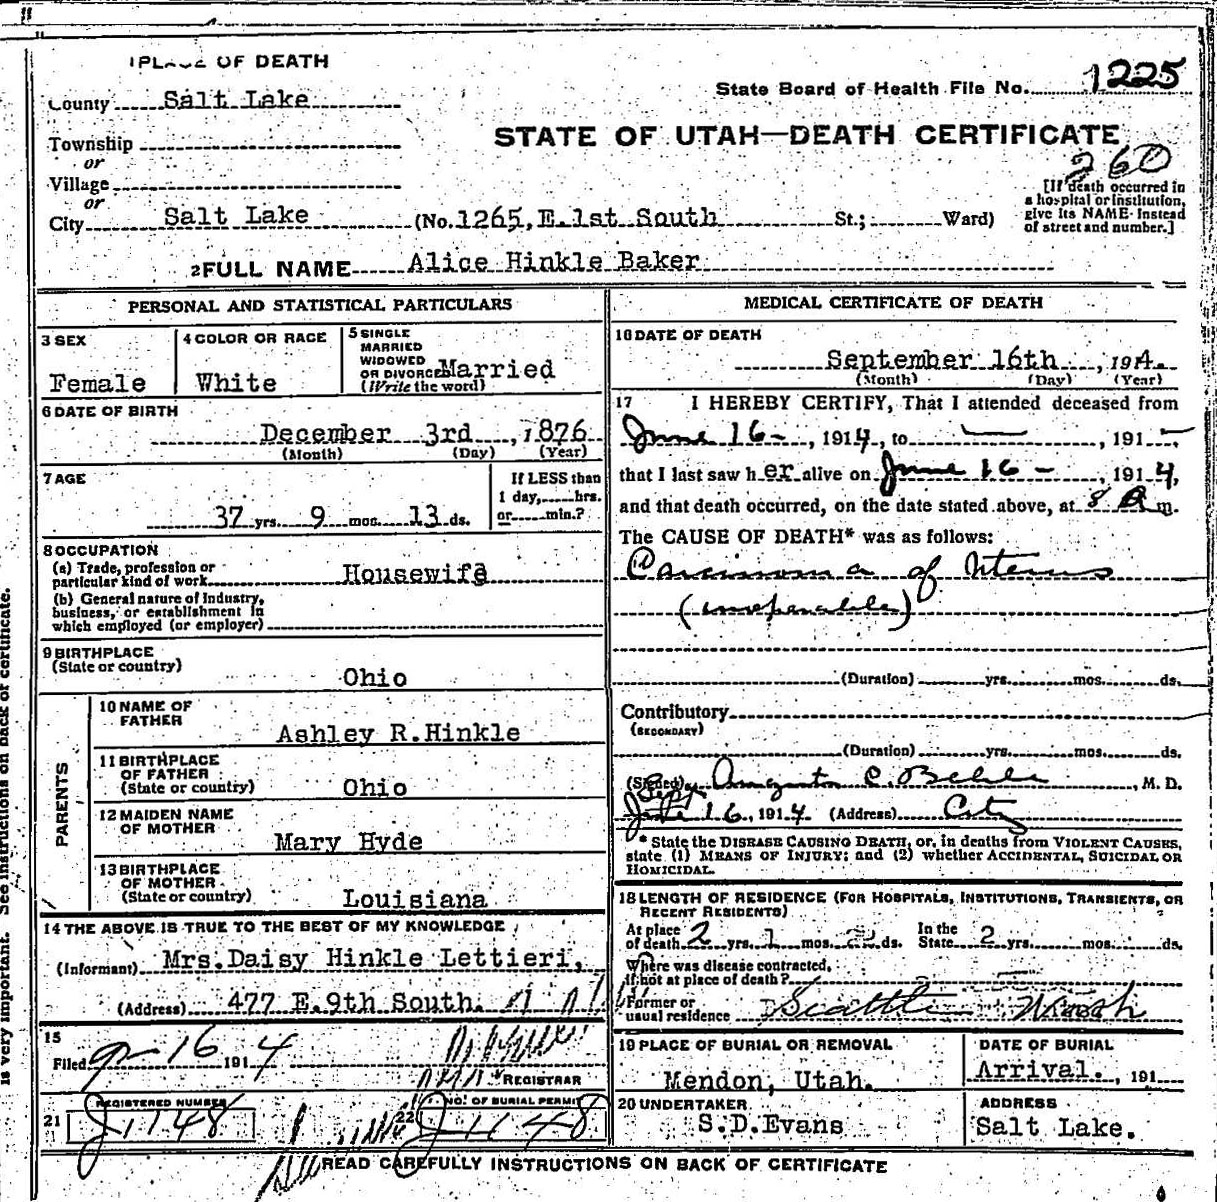 PLACE OF DEATH
County Salt Lake
State Board of Health File No. 1225
STATE OF UTAH—DEATH CERTIFICATE
260
Township
or
Village
or
City Salt Lake (No. 1265, E. 1st South St.; Ward)
[If death occurred in
a hospital or institution,
give its NAME instead
of street and number.]
2 FULL NAME Alice Hinkle Baker
PERSONAL AND STATISTICAL PARTICULARS
3 SEX
Female
4 COLOR OR RACE
White
5 SINGLE
MARRIED
WIDOWED
OR DIVORCED Married
(Write the word)
6 DATE OF BIRTH
December 3rd, 1876
(Month) (Day) (Year)
7 AGE
37 yrs. 9 mos. 13 ds.
If LESS than
1 day, hrs.
or min.?
8 OCCUPATION
(a) Trade, profession or
particular kind of work Housewife
(b) General nature of industry,
business, or establishment in
which employed (or employer)
9 BIRTHPLACE
(State or country)
Ohio
PARENTS
10 NAME OF
FATHER
Ashley R. Hinkle
11 BIRTHPLACE
OF FATHER
(State or country) Ohio
12 MAIDEN NAME
OF MOTHER
Mary Hyde
13 BIRTHPLACE
OF MOTHER
(State or country) Louisiana
14 THE ABOVE IS TRUE TO THE BEST OF MY KNOWLEDGE
(Informant) Mrs. Daisy Hinkle Lettieri,
(Address) 477 E. 9th South.
15
Filed 9-16 1914
REGISTRAR
21 REGISTERED NUMBER
J1148
22 NO. OF BURIAL PERMIT
J1148
MEDICAL CERTIFICATE OF DEATH
16 DATE OF DEATH
September 16th, 1914.
(Month) (Day) (Year)
17 I HEREBY CERTIFY, That I attended deceased from
June 16 -, 1914, to —, 191 -,
that I last saw her alive on June 16 -, 1914,
and that death occurred, on the date stated above, at 8 A m.
The CAUSE OF DEATH* was as follows:
Carcinoma of Uterus
(inoperable)
(Duration) yrs. mos. ds.
Contributory
(SECONDARY)
(Duration) yrs. mos. ds.
(Signed) August C. Behle, M. D.
Sept 16, 1914 (Address) City
* State the DISEASE CAUSING DEATH, or, in deaths from VIOLENT CAUSES,
state (1) MEANS OF INJURY; and (2) whether ACCIDENTAL, SUICIDAL OR
HOMICIDAL.
18 LENGTH OF RESIDENCE (FOR HOSPITALS, INSTITUTIONS, TRANSIENTS, OR
RECENT RESIDENTS)
At place
of death 2 yrs. 1 mos. ds. In the
State 2 yrs. mos. ds.
Where was disease contracted,
if not at place of death?
Former or
usual residence Seattle Wash
19 PLACE OF BURIAL OR REMOVAL
Mendon, Utah.
DATE OF BURIAL
Arrival., 191
20 UNDERTAKER
S.D.Evans
ADDRESS
Salt Lake.
READ CAREFULLY INSTRUCTIONS ON BACK OF CERTIFICATE
is very important. See instructions on back of certificate.